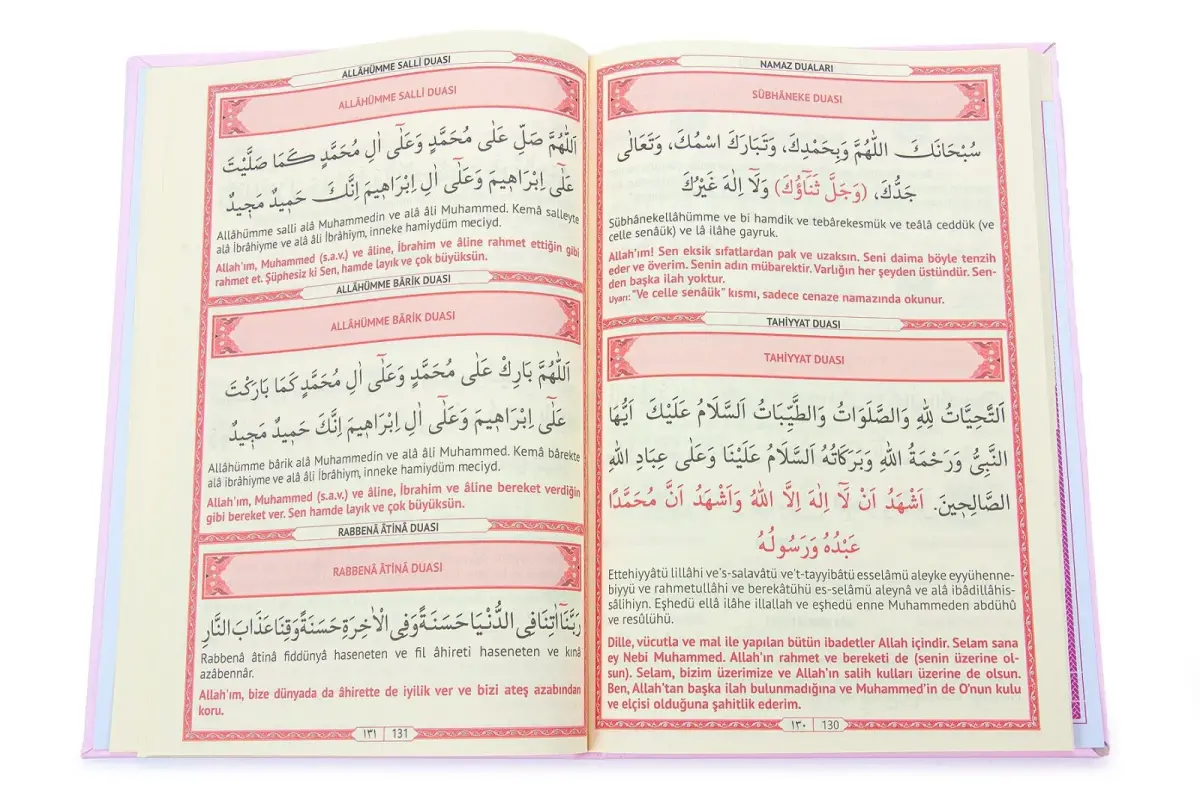 NAMAZ DUALARI
SÜBHÂNEKE DUASI
سُبْحَانَكَ اللّٰهُمَّ وَبِحَمْدِكَ، وَتَبَارَكَ اسْمُكَ، وَتَعَالٰى
جَدُّكَ، (وَجَلَّ ثَنَٓاؤُكَ) وَلَٓا اِلٰهَ غَيْرُكَ
Sübhânekellâhümme ve bi hamdik ve tebârekesmük ve teâlâ ceddük (ve
celle senâük) ve lâ ilâhe gayruk.
Allah'ım! Sen eksik sıfatlardan pak ve uzaksın. Seni daima böyle tenzih
eder ve överim. Senin adın mübarektir. Varlığın her şeyden üstündür. Sen-
den başka ilah yoktur.
Uyarı: "Ve celle senâük" kısmı, sadece cenaze namazında okunur.
TAHİYYAT DUASI
TAHİYYAT DUASI
اَلتَّحِيَّاتُ لِلّٰهِ وَالصَّلَوَاتُ وَالطَّيِّبَاتُ اَلسَّلَامُ عَلَيْكَ اَيُّهَا
النَّبِىُّ وَرَحْمَةُ اللّٰهِ وَبَرَكَاتُهُ اَلسَّلَامُ عَلَيْنَا وَعَلٰى عِبَادِ اللّٰهِ
الصَّالِحٖينَ. اَشْهَدُ اَنْ لَٓا اِلٰهَ اِلَّا اللّٰهُ وَاَشْهَدُ اَنَّ مُحَمَّدًا
عَبْدُهُ وَرَسُولُهُ
Ettehiyyâtü lillâhi ve's-salavâtü ve't-tayyibâtü esselâmü aleyke eyyühenne-
biyyü ve rahmetullâhi ve berekâtühü es-selâmü aleynâ ve alâ ibâdillâhis-
sâlihiyn. Eşhedü ellâ ilâhe illallah ve eşhedü enne Muhammeden abdühû
ve resûlühü.
Dille, vücutla ve mal ile yapılan bütün ibadetler Allah içindir. Selam sana
ey Nebi Muhammed. Allah'ın rahmet ve bereketi de (senin üzerine ol-
sun). Selam, bizim üzerimize ve Allah'ın salih kulları üzerine de olsun.
Ben, Allah'tan başka ilah bulunmadığına ve Muhammed'in de O'nun kulu
ve elçisi olduğuna şahitlik ederim.
١٣٠ 130
ALLÂHÜMME SALLİ DUASI
ALLÂHÜMME SALLİ DUASI
اَللّٰهُمَّ صَلِّ عَلٰى مُحَمَّدٍ وَعَلٰٓى اٰلِ مُحَمَّدٍ كَمَا صَلَّيْتَ
عَلٰٓى اِبْرَاهٖيمَ وَعَلٰٓى اٰلِ اِبْرَاهٖيمَ اِنَّكَ حَمٖيدٌ مَجٖيدٌ
Allâhümme salli alâ Muhammedin ve alâ âli Muhammed. Kemâ salleyte
alâ İbrâhiyme ve alâ âli İbrâhiym, inneke hamiydün meciyd.
Allah'ım, Muhammed (s.a.v.) ve âline, İbrahim ve âline rahmet ettiğin gibi
rahmet et. Şüphesiz ki Sen, hamde layık ve çok büyüksün.
ALLÂHÜMME BÂRİK DUASI
ALLÂHÜMME BÂRİK DUASI
اَللّٰهُمَّ بَارِكْ عَلٰى مُحَمَّدٍ وَعَلٰٓى اٰلِ مُحَمَّدٍ كَمَا بَارَكْتَ
عَلٰٓى اِبْرَاهٖيمَ وَعَلٰٓى اٰلِ اِبْرَاهٖيمَ اِنَّكَ حَمٖيدٌ مَجٖيدٌ
Allâhümme bârik alâ Muhammedin ve alâ âli Muhammed. Kemâ bârekte
alâ ibrâhiyme ve alâ âli İbrâhiym, inneke hamiydüm meciyd.
Allah'ım, Muhammed (s.a.v.) ve âline, İbrahim ve âline bereket verdiğin
gibi bereket ver. Sen hamde layık ve çok büyüksün.
RABBENÂ ÂTİNÂ DUASI
RABBENÂ ÂTİNÂ DUASI
رَبَّنَٓا اٰتِنَا فِى الدُّنْيَا حَسَنَةً وَفِى الْاٰخِرَةِ حَسَنَةً وَقِنَا عَذَابَ النَّارِ
Rabbenâ âtinâ fiddünyâ haseneten ve fil âhireti haseneten ve kınâ
azâbennâr.
Allah'ım, bize dünyada da âhirette de iyilik ver ve bizi ateş azabından
koru.
١٣١ 131